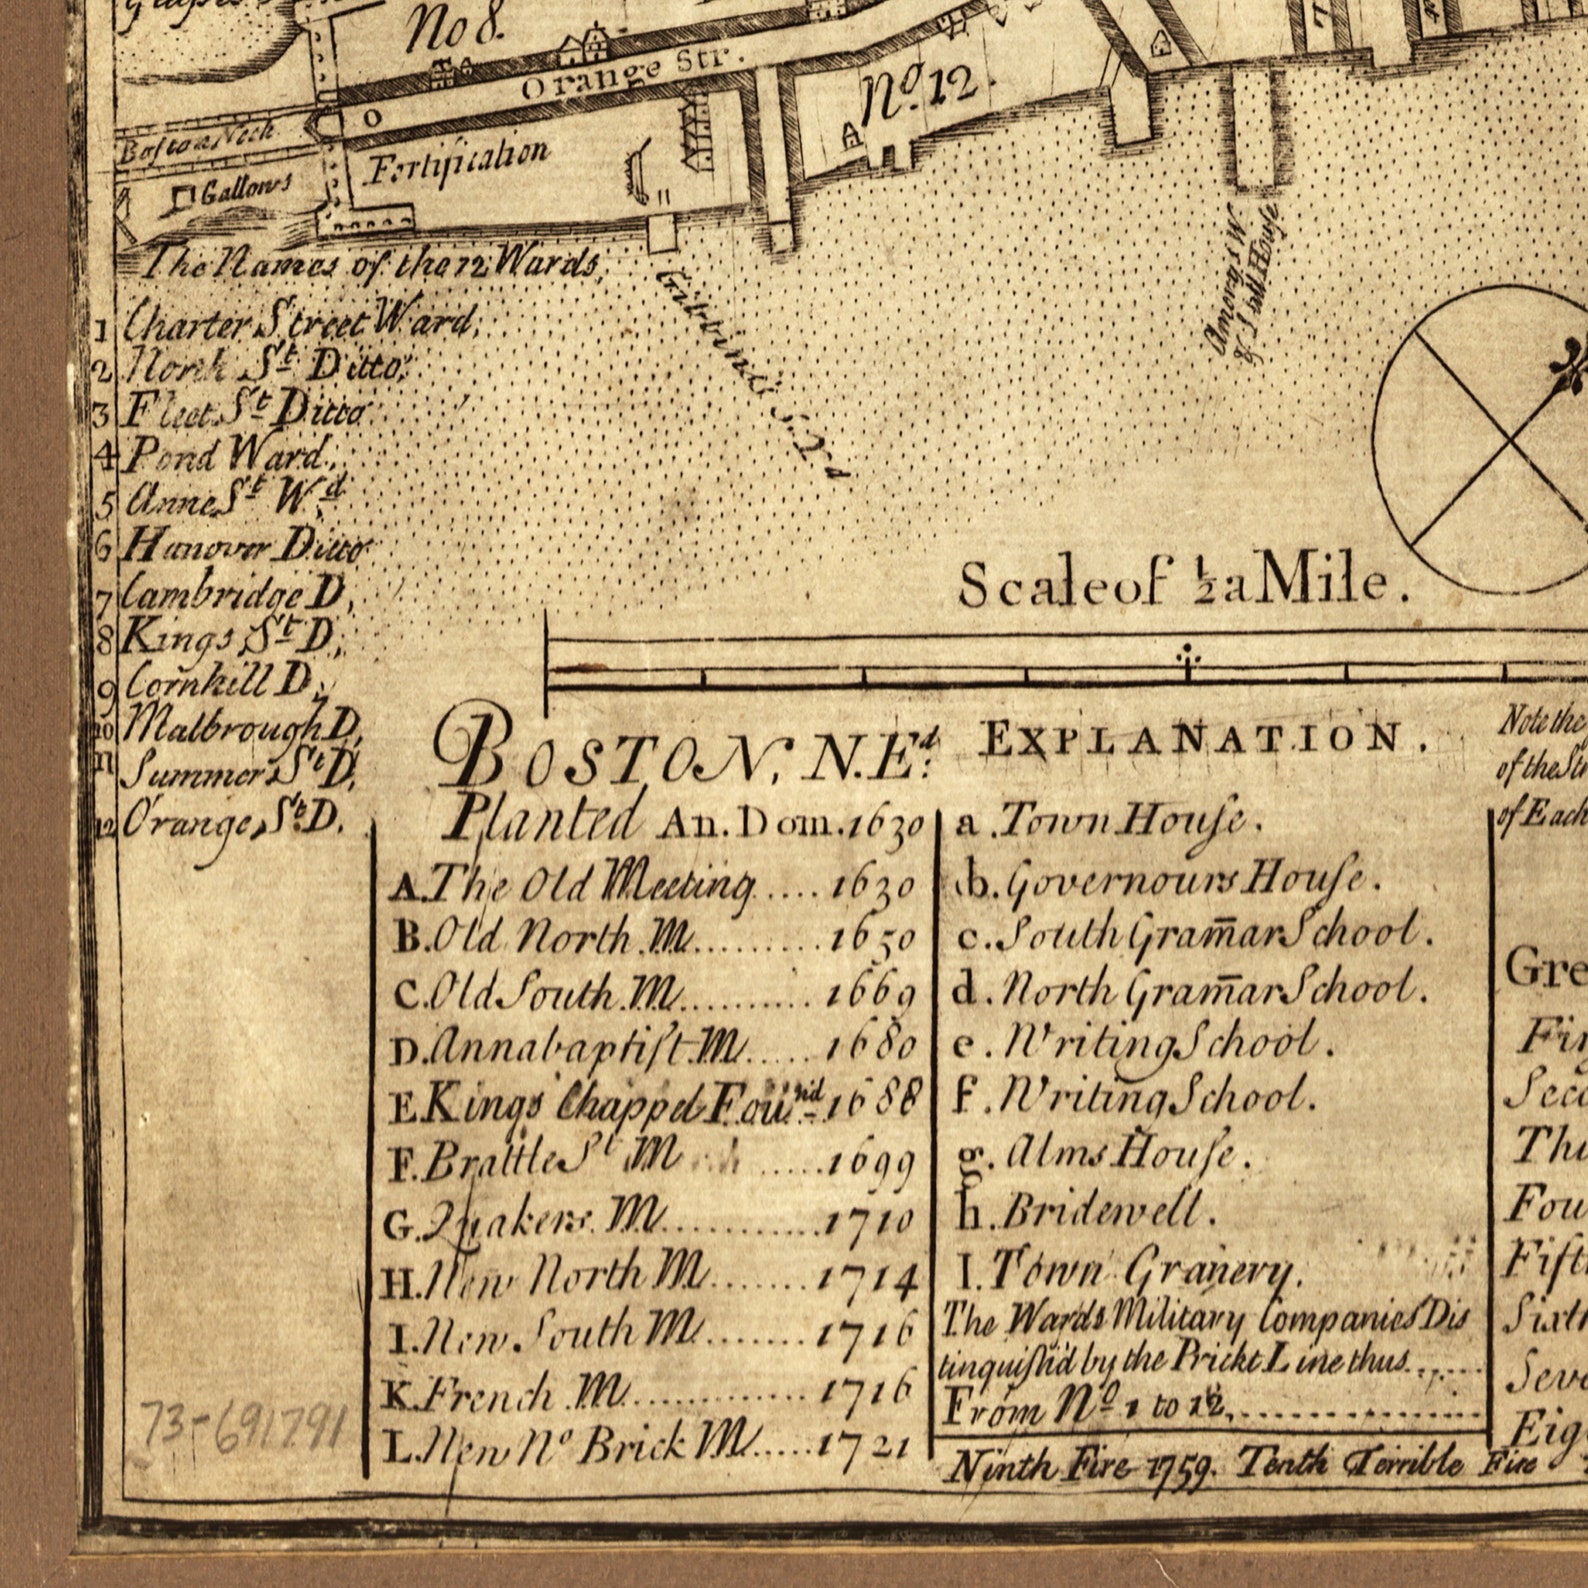 No 8.
Orange Str.
No. 12.
o
Boston Neck
Fortification
Gallows
The Names of the 12 Wards,
1 Charter Street Ward,
2 North St Ditto,
3 Fleet St Ditto
4 Pond Ward,
5 Anne St Wd
6 Hanover Ditto
7 Cambridge D,
8 Kings St D,
9 Cornhill D,
10 Malbrough D,
11 Summer St D,
12 Orange St D.
Gibbins S. Yd
Amorys W
& Still House
Scale of ½ a Mile.
BOSTON, N. Ed.
Planted An. Dom. 1630
A. The Old Meeting.... 1630
B. Old North M......... 1650
C. Old South M.......... 1669
D. Annabaptist M..... 1680
E. Kings Chappel Found 1688
F. Brattle St M ..... 1699
G. Quakers M............ 1710
H. New North M....... 1714
I. New South M....... 1716
K. French M............. 1716
L. New No Brick M..... 1721
EXPLANATION.
a. Town House.
b. Governours House.
c. South Gram̄ar School.
d. North Gram̄ar School.
e. Writing School.
f. Writing School.
g. Alms House.
h. Bridewell.
I. Town Granery.
The Wards Military Companies Dis
tinguish'd by the Prickt Line thus......
From No 1 to 12,..................
Note the
of the St
of Each
Gre
Fir
Seco
Thi
Fou
Fift
Sixth
Seve
Eig
Ninth Fire 1759. Tenth Terrible Fire
73-691791